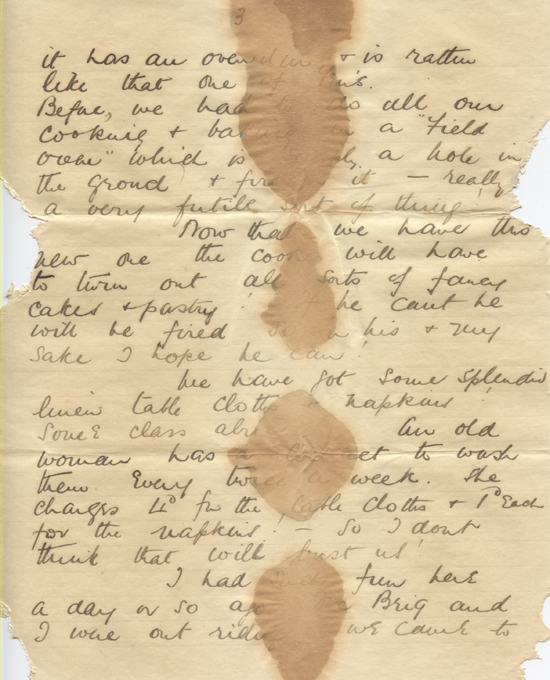 3
it has an oven in & is rather
like that one of
Before, we had to do all our
cooking & baking in a "Field
oven" which is a hole in
the ground & fire it — really
a very futile sort of thing!
Now that we have this
new one the cook will have
to turn out all sorts of fancy
cakes & pastry! If he cant he
will be fired So in his & my
sake I hope he can!
We have got some splendid
linen table cloths & napkins!
Some class alr An old
woman has a to wash
them Every twice a week. She
charges 4D for the table cloths & 1D Each
for the napkins! — So I dont
think that will bust us!
I had fun here
a day or so ago Brig and
I were out we came to